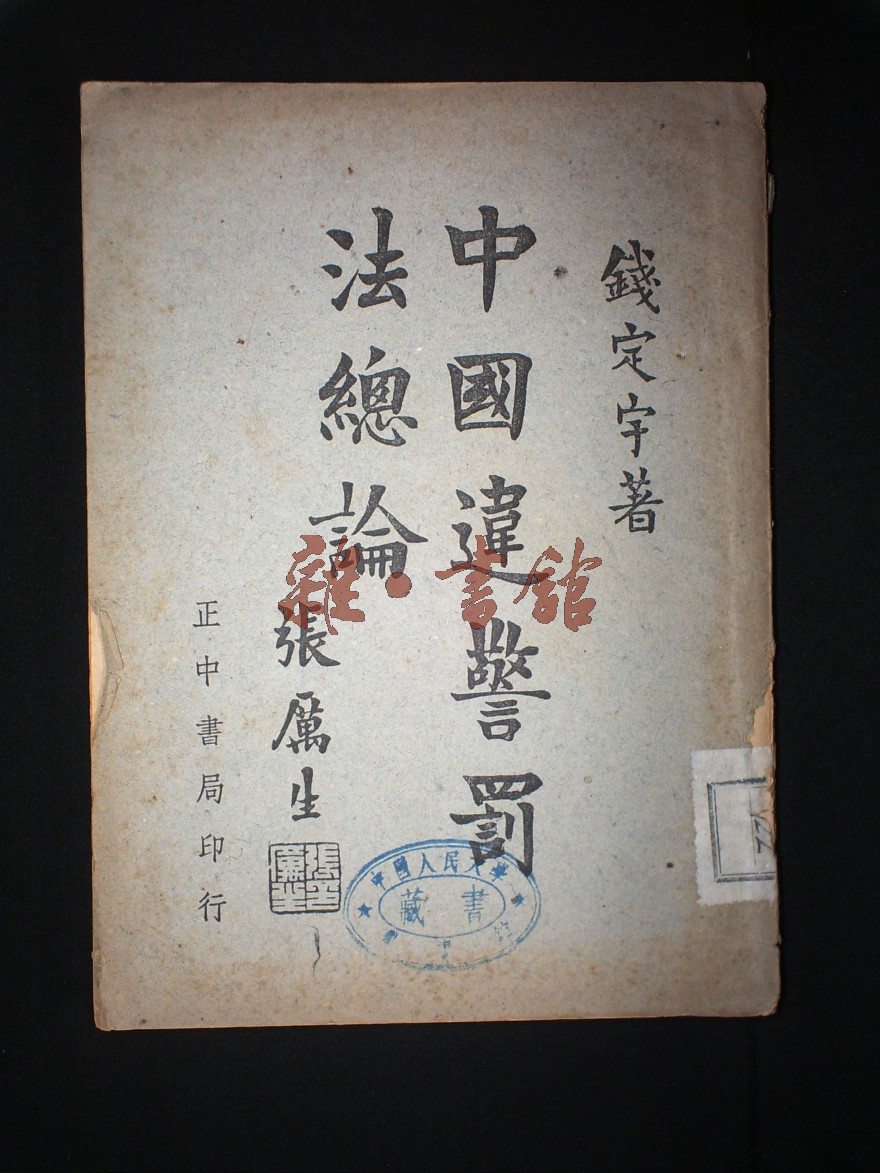 錢定宇著
中國違警罰
法總論
張厲生
張厲生
正中書局印行
雜·書館
中國人民大學
藏書